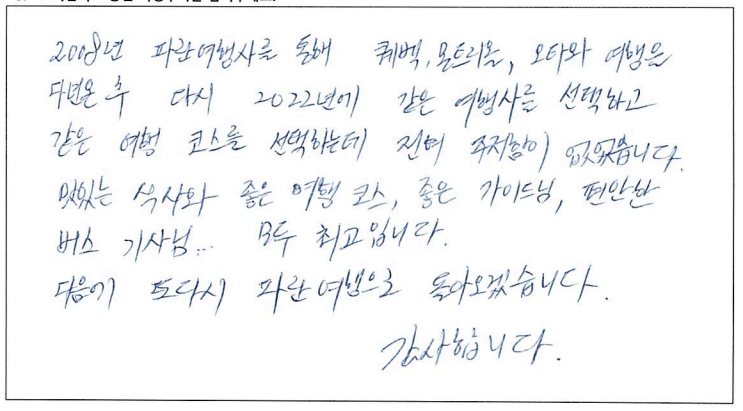 2008년 파란여행사를 통해 퀘벡, 몬트리올, 오타와 여행을
다녀온 후 다시 2022년에 같은 여행사를 선택하고
같은 여행 코스를 선택하는데 전혀 주저함이 없었습니다.
맛있는 식사와 좋은 여행 코스, 좋은 가이드님, 편안한
버스 기사님... 모두 최고입니다.
다음에 또다시 파란여행으로 돌아오겠습니다.
감사합니다.